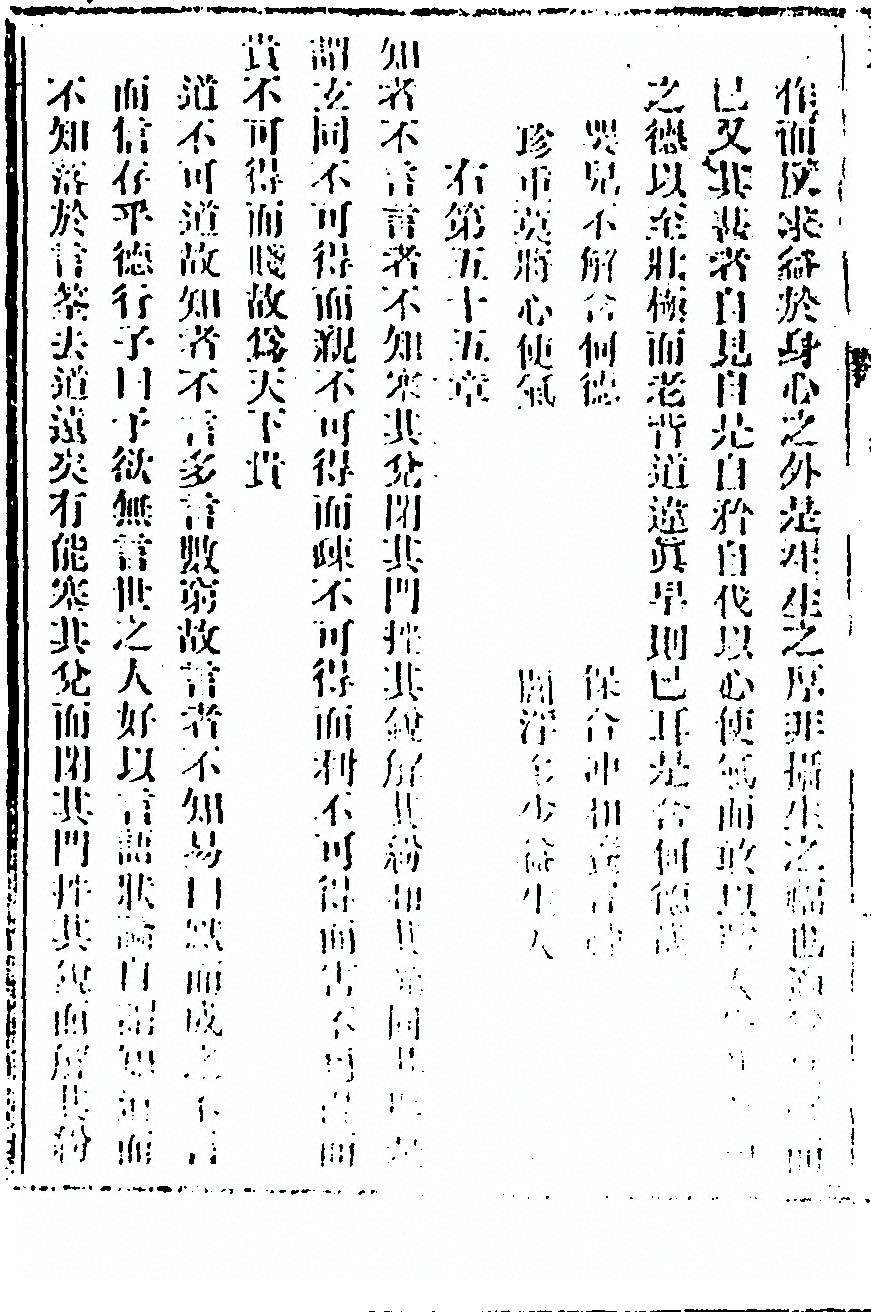 作而反求益於身心之外是生生之厚非攝生之
已又其甚者自見自是自矜自伐以心使氣而敢
之德以至壯極而老背道違眞早則已耳是含何德
嬰兒不解含何德 保合沖和
珍重莫將心使氣 閻浮多少益生人
右第五十五章
知者不言言者不知塞其兌閉其門挫其銳解其紛和其光同其塵是
謂玄同不可得而親不可得而疎不可得而利不可得而害不可得而
貴不可得而賤故爲天下貴
道不可道故知者不言多言數窮故言者不知易曰默而成之不言
而信存乎德行子曰予欲無言世之人好以言語狀論自謂知道而
不知落於言筌去道遠矣有能塞其兌而閉其門挫其銳而解其紛